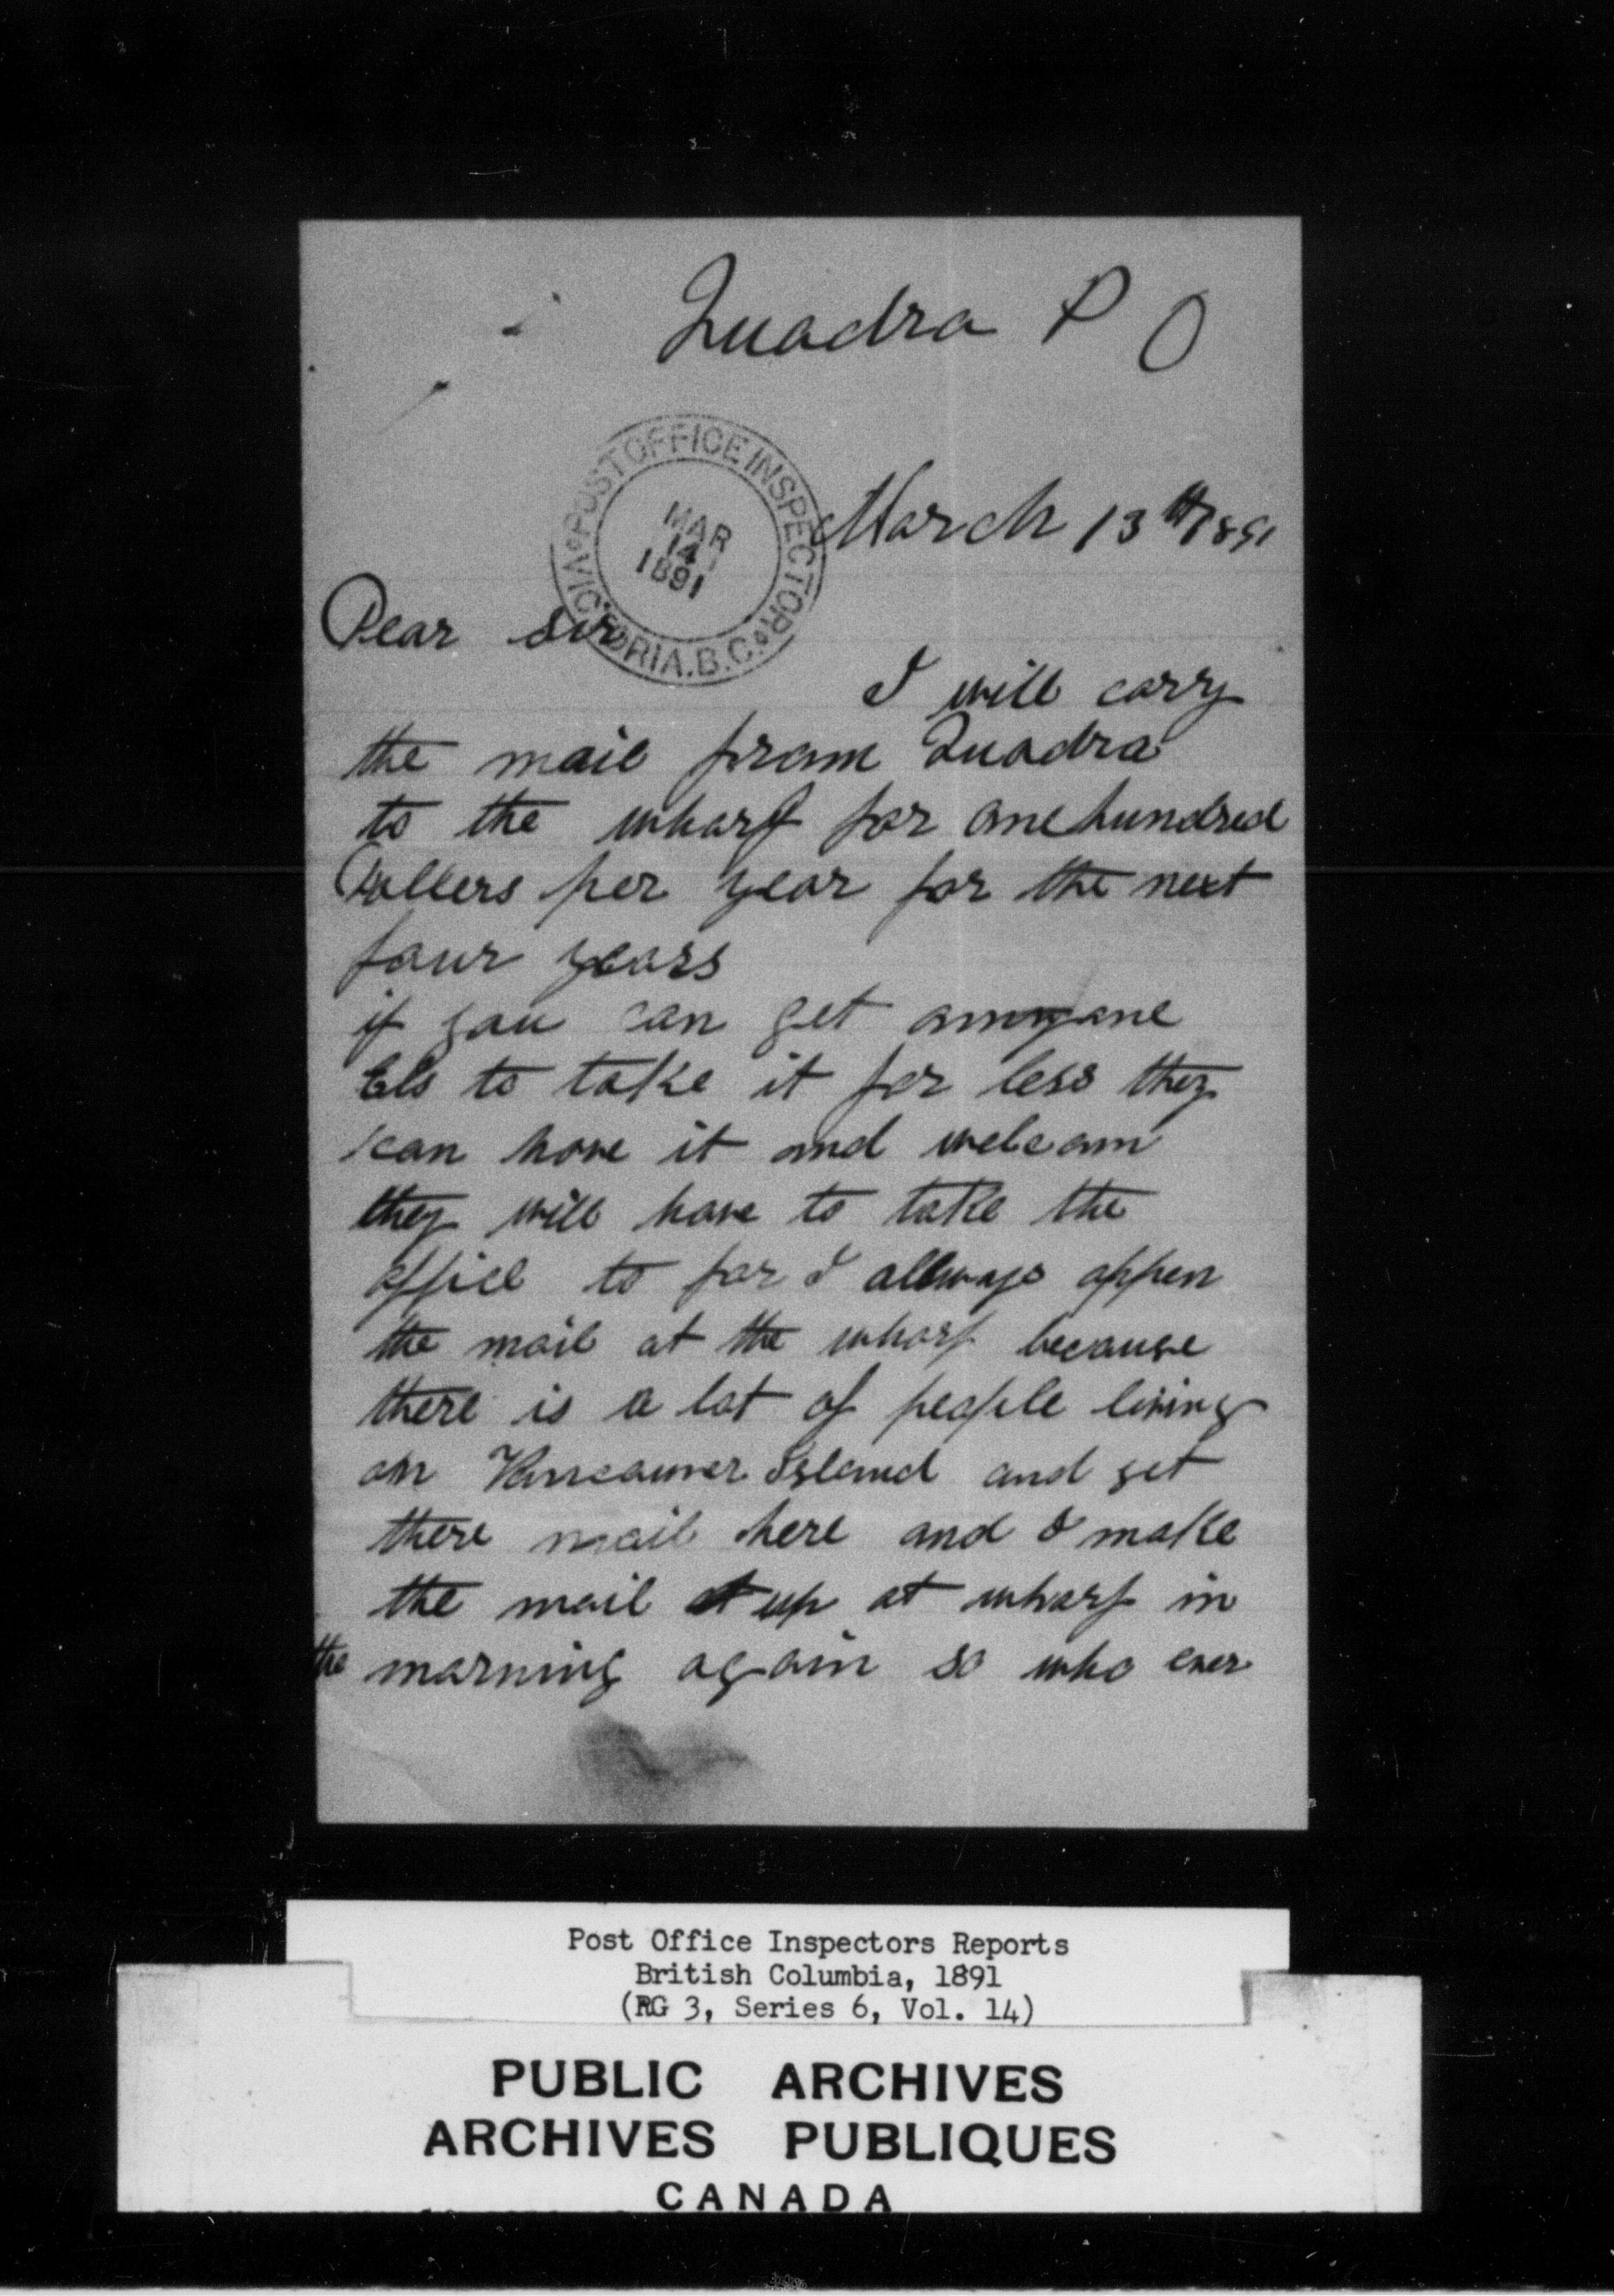 Quadra P O
POST OFFICE INSPECTOR
VICTORIA. B.C.
MAR
14
1891
March 13th 1891
Dear Sir
I will carry
the mail from Quadra
to the wharf for one hundred
Dollers per year for the next
four years
if you can get annyone
Els to take it for less they
can have it and welcom
they will have to take the
office to for I allways oppen
the mail at the wharf because
there is a lot of people living
on Vancouver Island and get
there mail here and I make
the mail up at wharf in
the morning again so who ever
Post Office Inspectors Reports
British Columbia, 1891
(RG 3, Series 6, Vol. 14)
PUBLIC ARCHIVES
ARCHIVES PUBLIQUES
CANADA